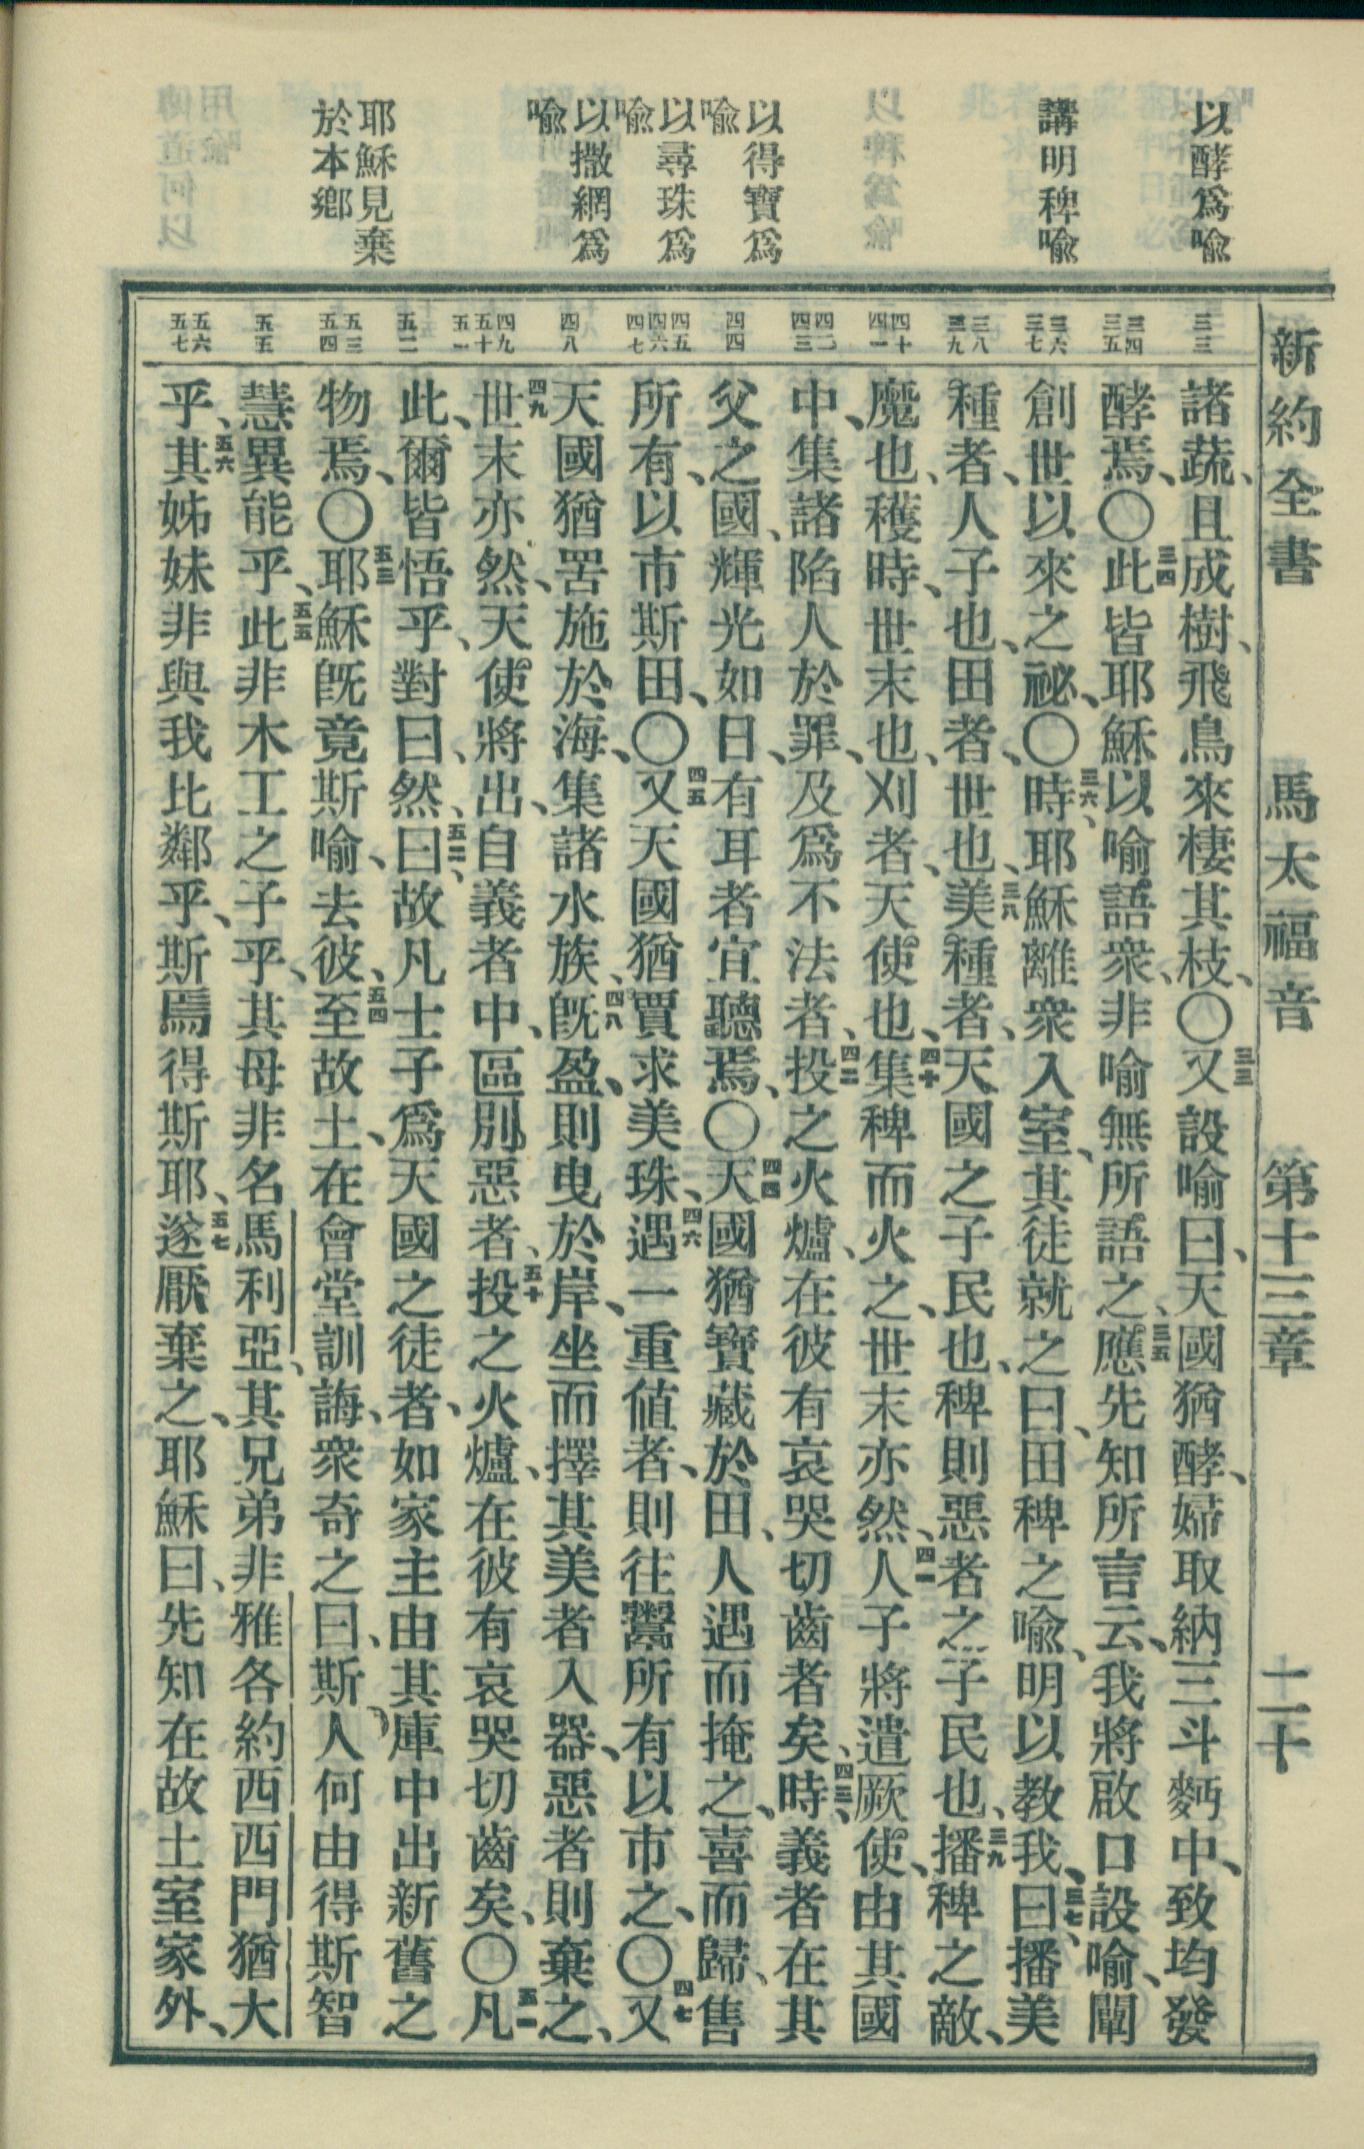 新約全書　馬太福音　第十三章　二十
以酵爲喩
講明稗喩
以得寶爲
喩
以尋珠爲
喩
以撒網爲
喩
耶穌見棄
於本鄉
三三
三四
三五
三六
三七
三八
三九
四十
四一
四二
四三
四四
四五
四六
四七
四八
四九
五十
五一
五二
五三
五四
五五
五六
五七
諸蔬、且成樹、飛鳥來棲其枝、〇三三又設喩曰、天國猶酵、婦取納三斗麪中、致均發
酵焉、〇三四此皆耶穌以喩語衆、非喩無所語之、三五應先知所言云、我將啟口設喩、闡
創世以來之祕、〇三六時、耶穌離衆入室、其徒就之曰、田稗之喩、明以教我、三七曰、播美
種者、人子也、田者、世也、三八美種者、天國之子民也、稗則惡者之子民也、三九播稗之敵、
魔也、穫時、世末也、刈者、天使也、四十集稗而火之、世末亦然、四一人子將遣厥使、由其國
中、集諸陷人於罪、及爲不法者、四二投之火爐、在彼有哀哭切齒者矣、四三時、義者在其
父之國、輝光如日、有耳者宜聽焉、〇四四天國猶寶藏於田、人遇而掩之、喜而歸、售
所有、以市斯田、〇四五又天國猶賈求美珠、四六遇一重値者、則往鬻所有以市之、〇四七又
天國猶罟施於海、集諸水族、四八旣盈、則曳於岸、坐而擇其美者入器、惡者則棄之、
四九世末亦然、天使將出、自義者中、區別惡者、五十投之火爐、在彼有哀哭切齒矣、〇五一凡
此、爾皆悟乎、對曰、然、五二曰、故凡士子爲天國之徒者、如家主由其庫中出新舊之
物焉、〇五三耶穌旣竟斯喩、去彼、五四至故土、在會堂訓誨、衆奇之曰、斯人何由得斯智
慧異能乎、五五此非木工之子乎、其母非名馬利亞、其兄弟非雅各約西西門猶大
乎、五六其姊妹非與我比鄰乎、斯焉得斯耶、五七遂厭棄之、耶穌曰、先知在故土室家外、